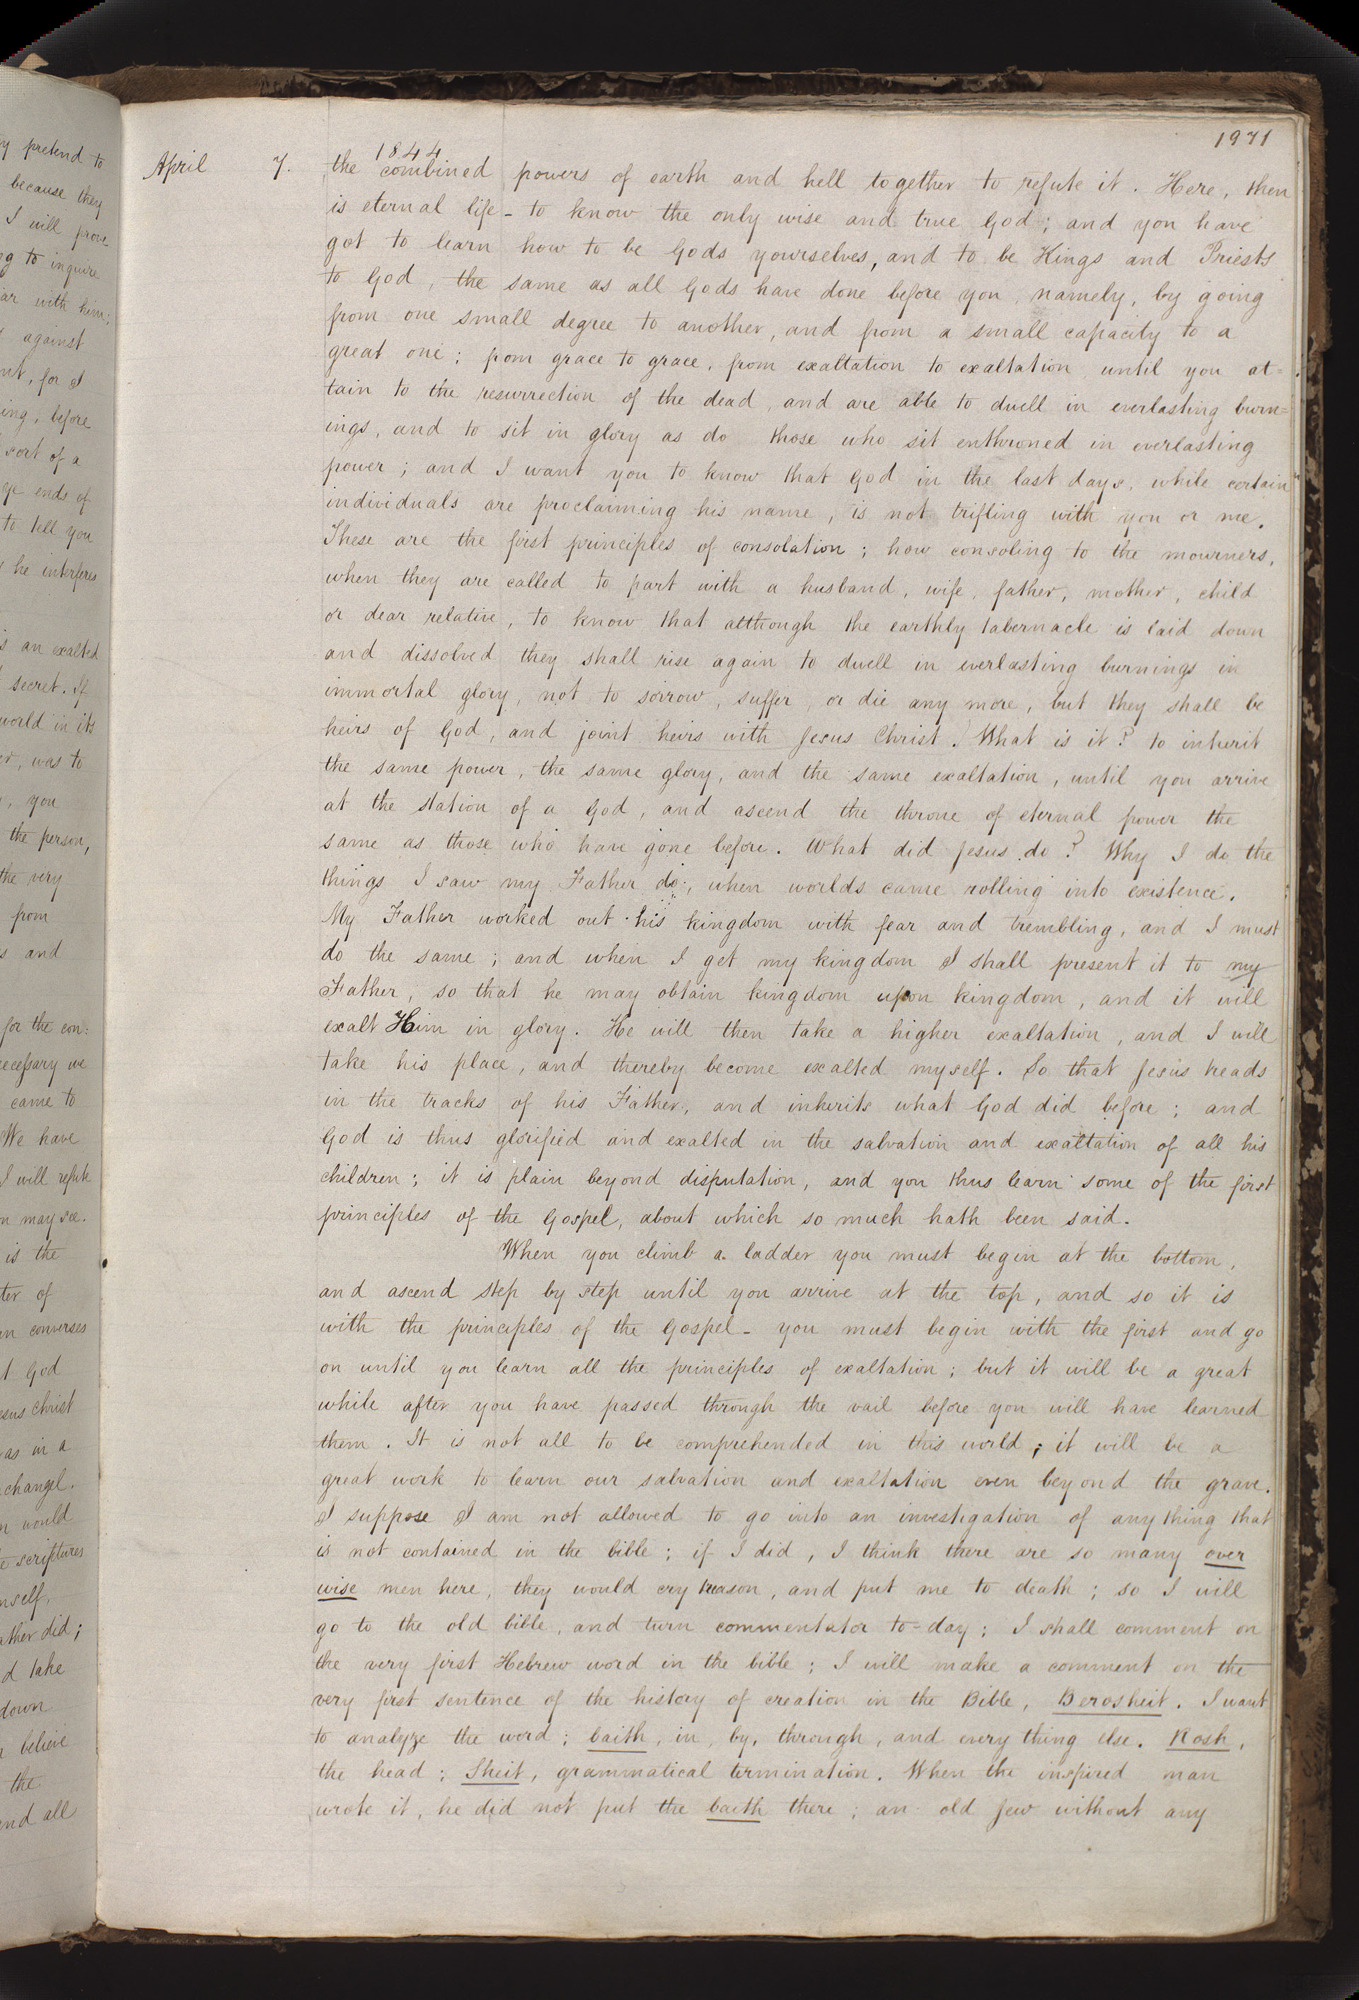 y pretend to
because they
I will prove
g to inquire
ar with him;
against
nt, for I
ing, before
sort of a
ge ends of
to tell you
he interferes
is an exalted
secret. If
world in its
er, was to
, you
the person,
the very
from
s and
for the con:
necessary we
came to
We have
I will refute
n may see.
is the
ter of
an converses
t God
esus Christ
as in a
changel.
n would
e scriptures
mself,
ather did;
d take
down
believe
the
end all
1971
1844
April 7. the combined powers of earth and hell together to refute it. Here, then
is eternal life - to know the only wise and true God; and you have
got to learn how to be Gods yourselves, and to be Kings and Priests
to God, the same as all Gods have done before you, namely, by going
from one small degree to another, and from a small capacity to a
great one; from grace to grace, from exaltation to exaltation until you at=
tain to the resurrection of the dead, and are able to dwell in everlasting burn=
ings, and to sit in glory as do those who sit enthroned in everlasting
power; and I want you to know that God in the last days, while certain
individuals are proclaiming his name, is not trifling with you or me.
These are the first principles of consolation; how consoling to the mourners,
when they are called to part with a husband, wife, father, mother, child
or dear relative, to know that although the earthly tabernacle is laid down
and dissolved they shall rise again to dwell in everlasting burnings in
immortal glory, not to sorrow, suffer, or die any more, but they shall be
heirs of God, and joint heirs with Jesus Christ. What is it? to inherit
the same power, the same glory, and the same exaltation, until you arrive
at the station of a God, and ascend the throne of eternal power the
same as those who have gone before. What did Jesus do? Why I do the
things I saw my Father do, when worlds came rolling into existence.
My Father worked out his kingdom with fear and trembling, and I must
do the same; and when I get my kingdom I shall present it to my
Father, so that he may obtain kingdom upon kingdom, and it will
exalt Him in glory. He will then take a higher exaltation, and I will
take his place, and thereby become exalted myself. So that Jesus treads
in the tracks of his Father, and inherits what God did before; and
God is thus glorified and exalted in the salvation and exaltation of all his
children; it is plain beyond disputation, and you thus learn some of the first
principles of the Gospel, about which so much hath been said.
When you climb a ladder you must begin at the bottom,
and ascend step by step until you arrive at the top, and so it is
with the principles of the Gospel - you must begin with the first and go
on until you learn all the principles of exaltation; but it will be a great
while after you have passed through the vail before you will have learned
them. It is not all to be comprehended in this world; it will be a
great work to learn our salvation and exaltation even beyond the grave.
I suppose I am not allowed to go into an investigation of any thing that
is not contained in the bible; if I did, I think there are so many over
wise men here, they would cry treason, and put me to death; so I will
go to the old bible, and turn commentator to=day; I shall comment on
the very first Hebrew word in the bible; I will make a comment on the
very first sentence of the history of creation in the Bible, Berosheit. I want
to analyze the word; baith, in, by, through, and every thing else. Rosh,
the head; Sheit, grammatical termination. When the inspired man
wrote it, he did not put the baith there; an old Jew without any